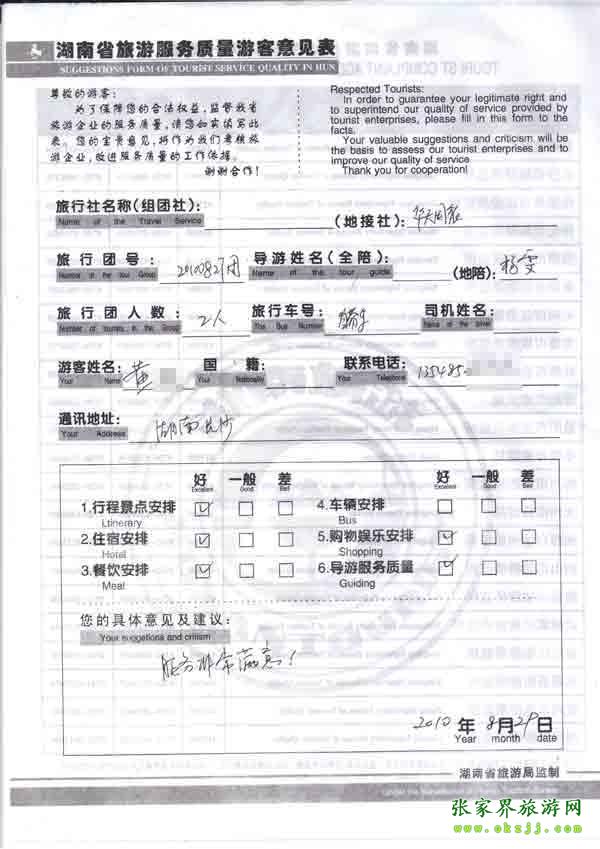 湖南省旅游服务质量游客意见表
SUGGESTIONS FORM OF TOURIST SERVICE QUALITY IN HUN
尊敬的游客:
为了保障您的合法权益,监督我省
旅游企业的服务质量,请您如实填写此
表。您的宝贵意见,将作为我们考核旅
游企业,改进服务质量的工作依据。
谢谢合作!
Respected Tourists:
In order to guarantee your legitimate right and
to superintend our quality of service provided by
tourist enterprises, please fill in this form to the
facts.
Your valuable suggestions and criticism will be
the basis to assess our tourist enterprises and to
improve our quality of service
Thank you for cooperation!
旅行社名称(组团社): (地接社):
Name of the Travel Service
旅行团号: 20100827团 导游姓名(全陪): (地陪): 杨雯
Number in the tour Group Name of the tour guide
旅行团人数: 2人 旅行车号: 司机姓名:
Number of tourists in the Group The Bus Number Name of the driver
游客姓名: 黄 国籍: 联系电话: 135485
Your Name Your Nationality Your Telephone
通讯地址: 湖南长沙
Your Address
好 一般 差 好 一般 差
Excellent Good Bad Excellent Good Bad
1.行程景点安排 ✓ □ □ 4.车辆安排 □ □ □
Ltinerary Bus
2.住宿安排 ✓ □ □ 5.购物娱乐安排 ✓ □ □
Hotel Shopping
3.餐饮安排 ✓ □ □ 6.导游服务质量 ✓ □ □
Meal Guiding
您的具体意见及建议:
Your suggetions and critism
服务非常满意!
2010年8月29日
Year month date
湖南省旅游局监制
张家界旅游网
www.okzjj.com